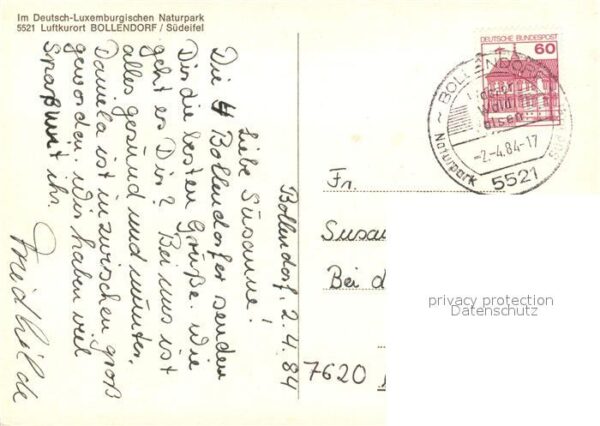 Im Deutsch-Luxemburgischen Naturpark
5521 Luftkurort BOLLENDORF / Südeifel
Bollendorf, 2.4.84
Liebe Susanne!
Die 4 Bollendorfer senden
Dir die besten Grüße. Wie
geht es Dir? Bei uns ist
alles gesund und munter.
Daniela ist inzwischen groß
geworden. Wir haben viel
Spaß mit ihr.
Friedhilde
DEUTSCHE BUNDESPOST
60
BOLLENDORF
Wald
-2.-4.84-17
Naturpark
5521
Fr.
Susan
Bei d
7620
privacy protection
Datenschutz